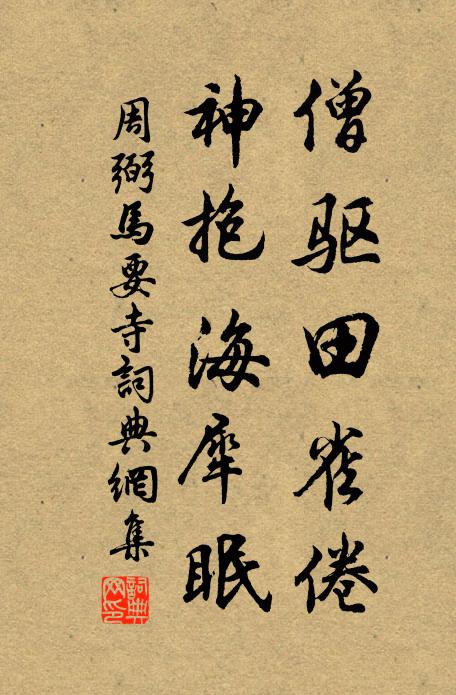 僧驱田雀倦
神抱海犀眠
周弼馬要寺詞典網集
詞典网印